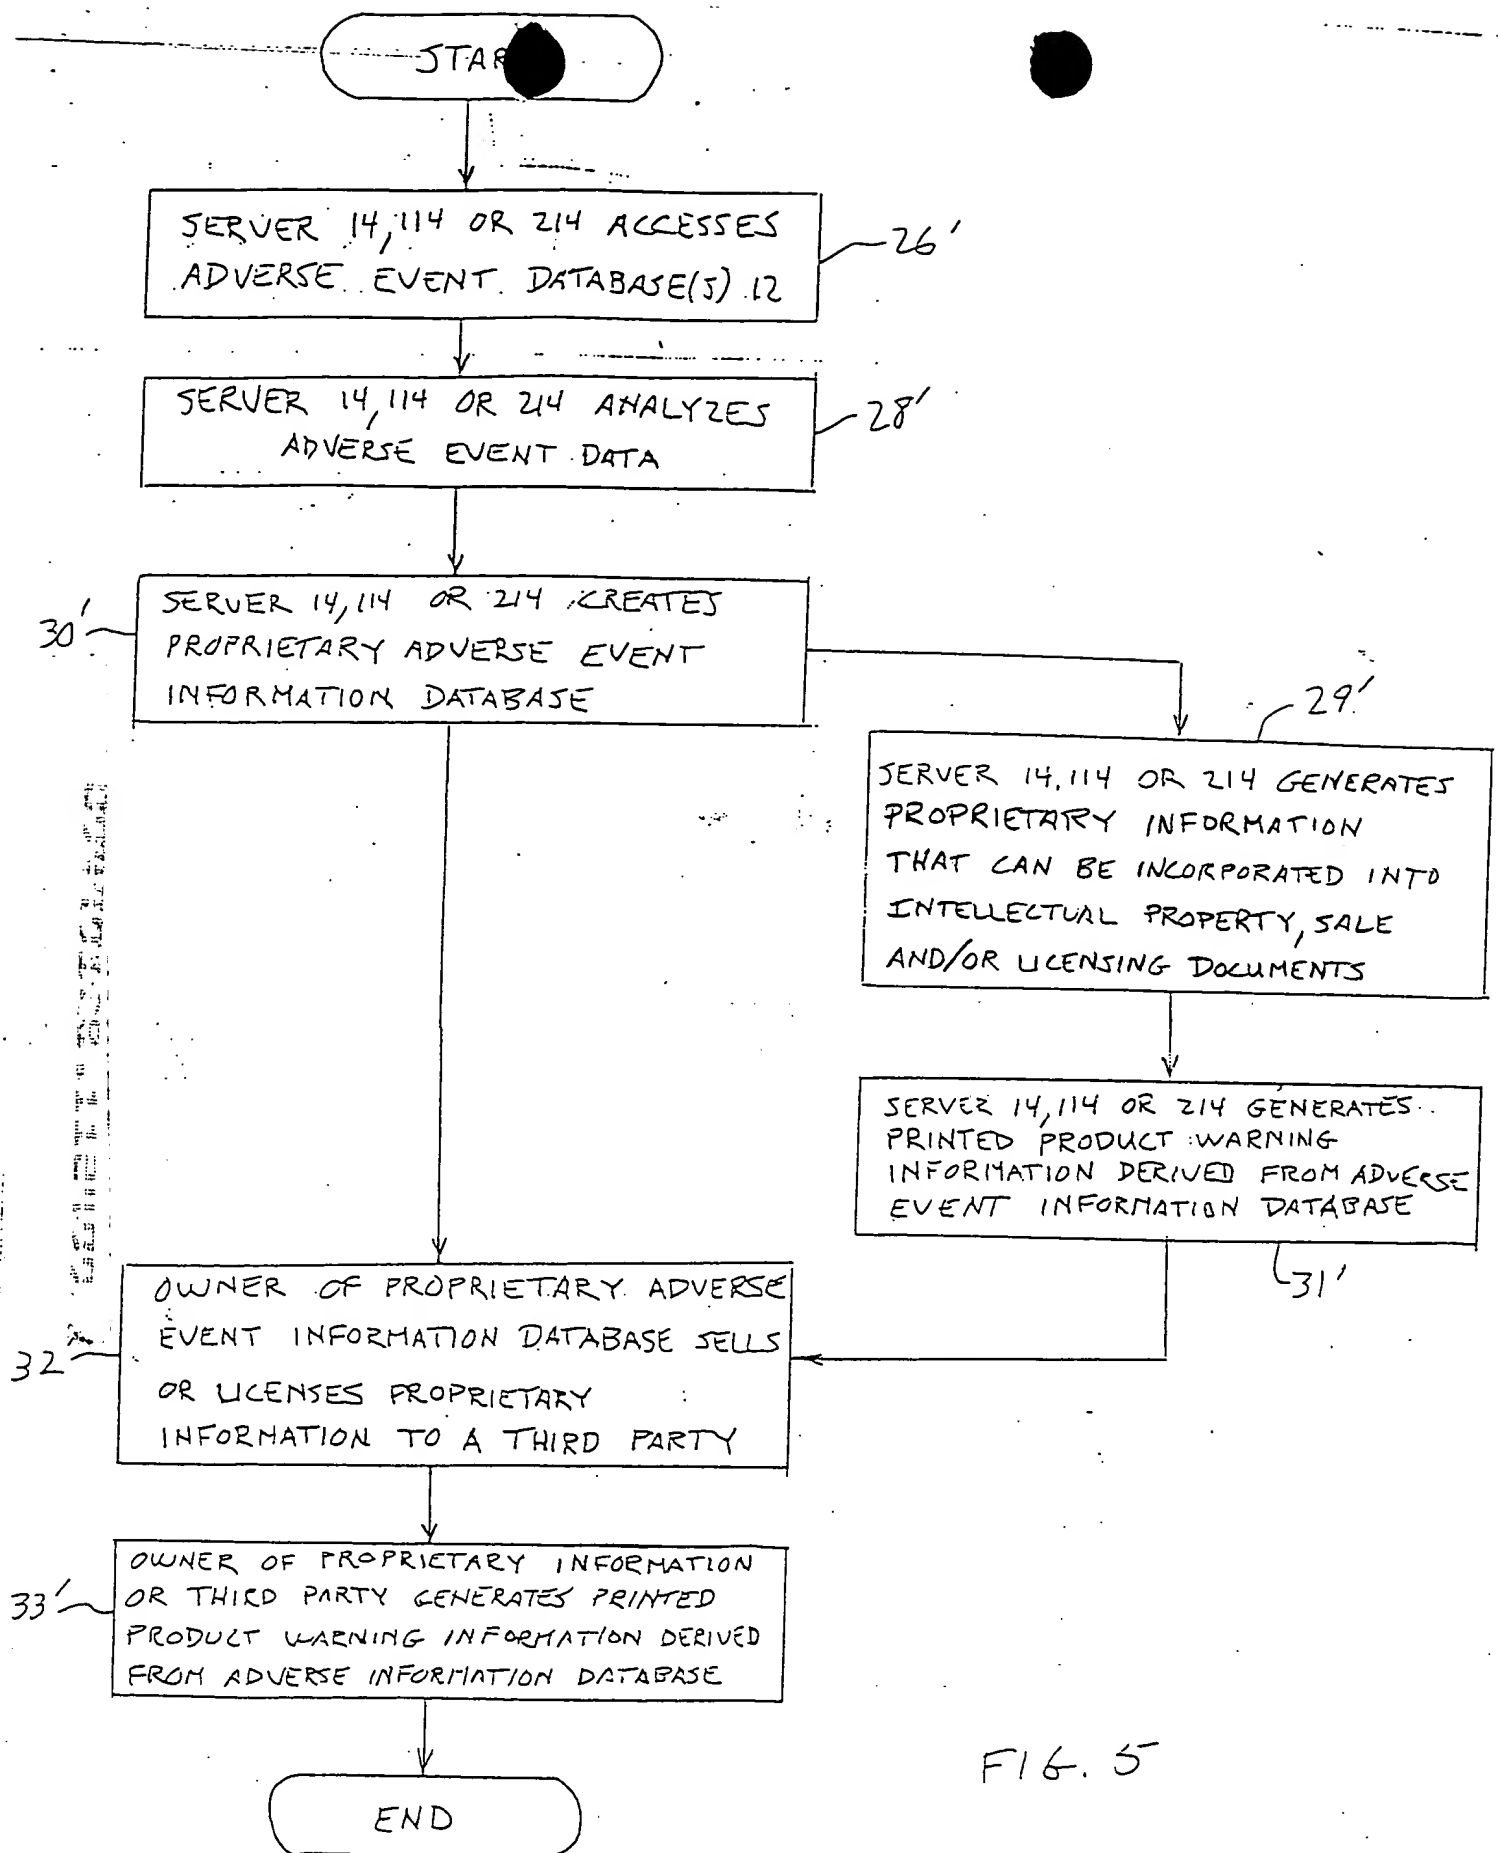 STAR
SERVER 14,114 OR 214 ACCESSES
ADVERSE EVENT DATABASE(S) 12
26'
SERVER 14,114 OR 214 ANALYZES
ADVERSE EVENT DATA
28'
SERVER 14,114 OR 214 CREATES
PROPRIETARY ADVERSE EVENT
INFORMATION DATABASE
30'
29'
SERVER 14,114 OR 214 GENERATES
PROPRIETARY INFORMATION
THAT CAN BE INCORPORATED INTO
INTELLECTUAL PROPERTY, SALE
AND/OR LICENSING DOCUMENTS
SERVER 14,114 OR 214 GENERATES
PRINTED PRODUCT WARNING
INFORMATION DERIVED FROM ADVERSE
EVENT INFORMATION DATABASE
31'
OWNER OF PROPRIETARY ADVERSE
EVENT INFORMATION DATABASE SELLS
OR LICENSES PROPRIETARY
INFORMATION TO A THIRD PARTY
32
OWNER OF PROPRIETARY INFORMATION
OR THIRD PARTY GENERATES PRINTED
PRODUCT WARNING INFORMATION DERIVED
FROM ADVERSE INFORMATION DATABASE
33'
END
FIG. 5